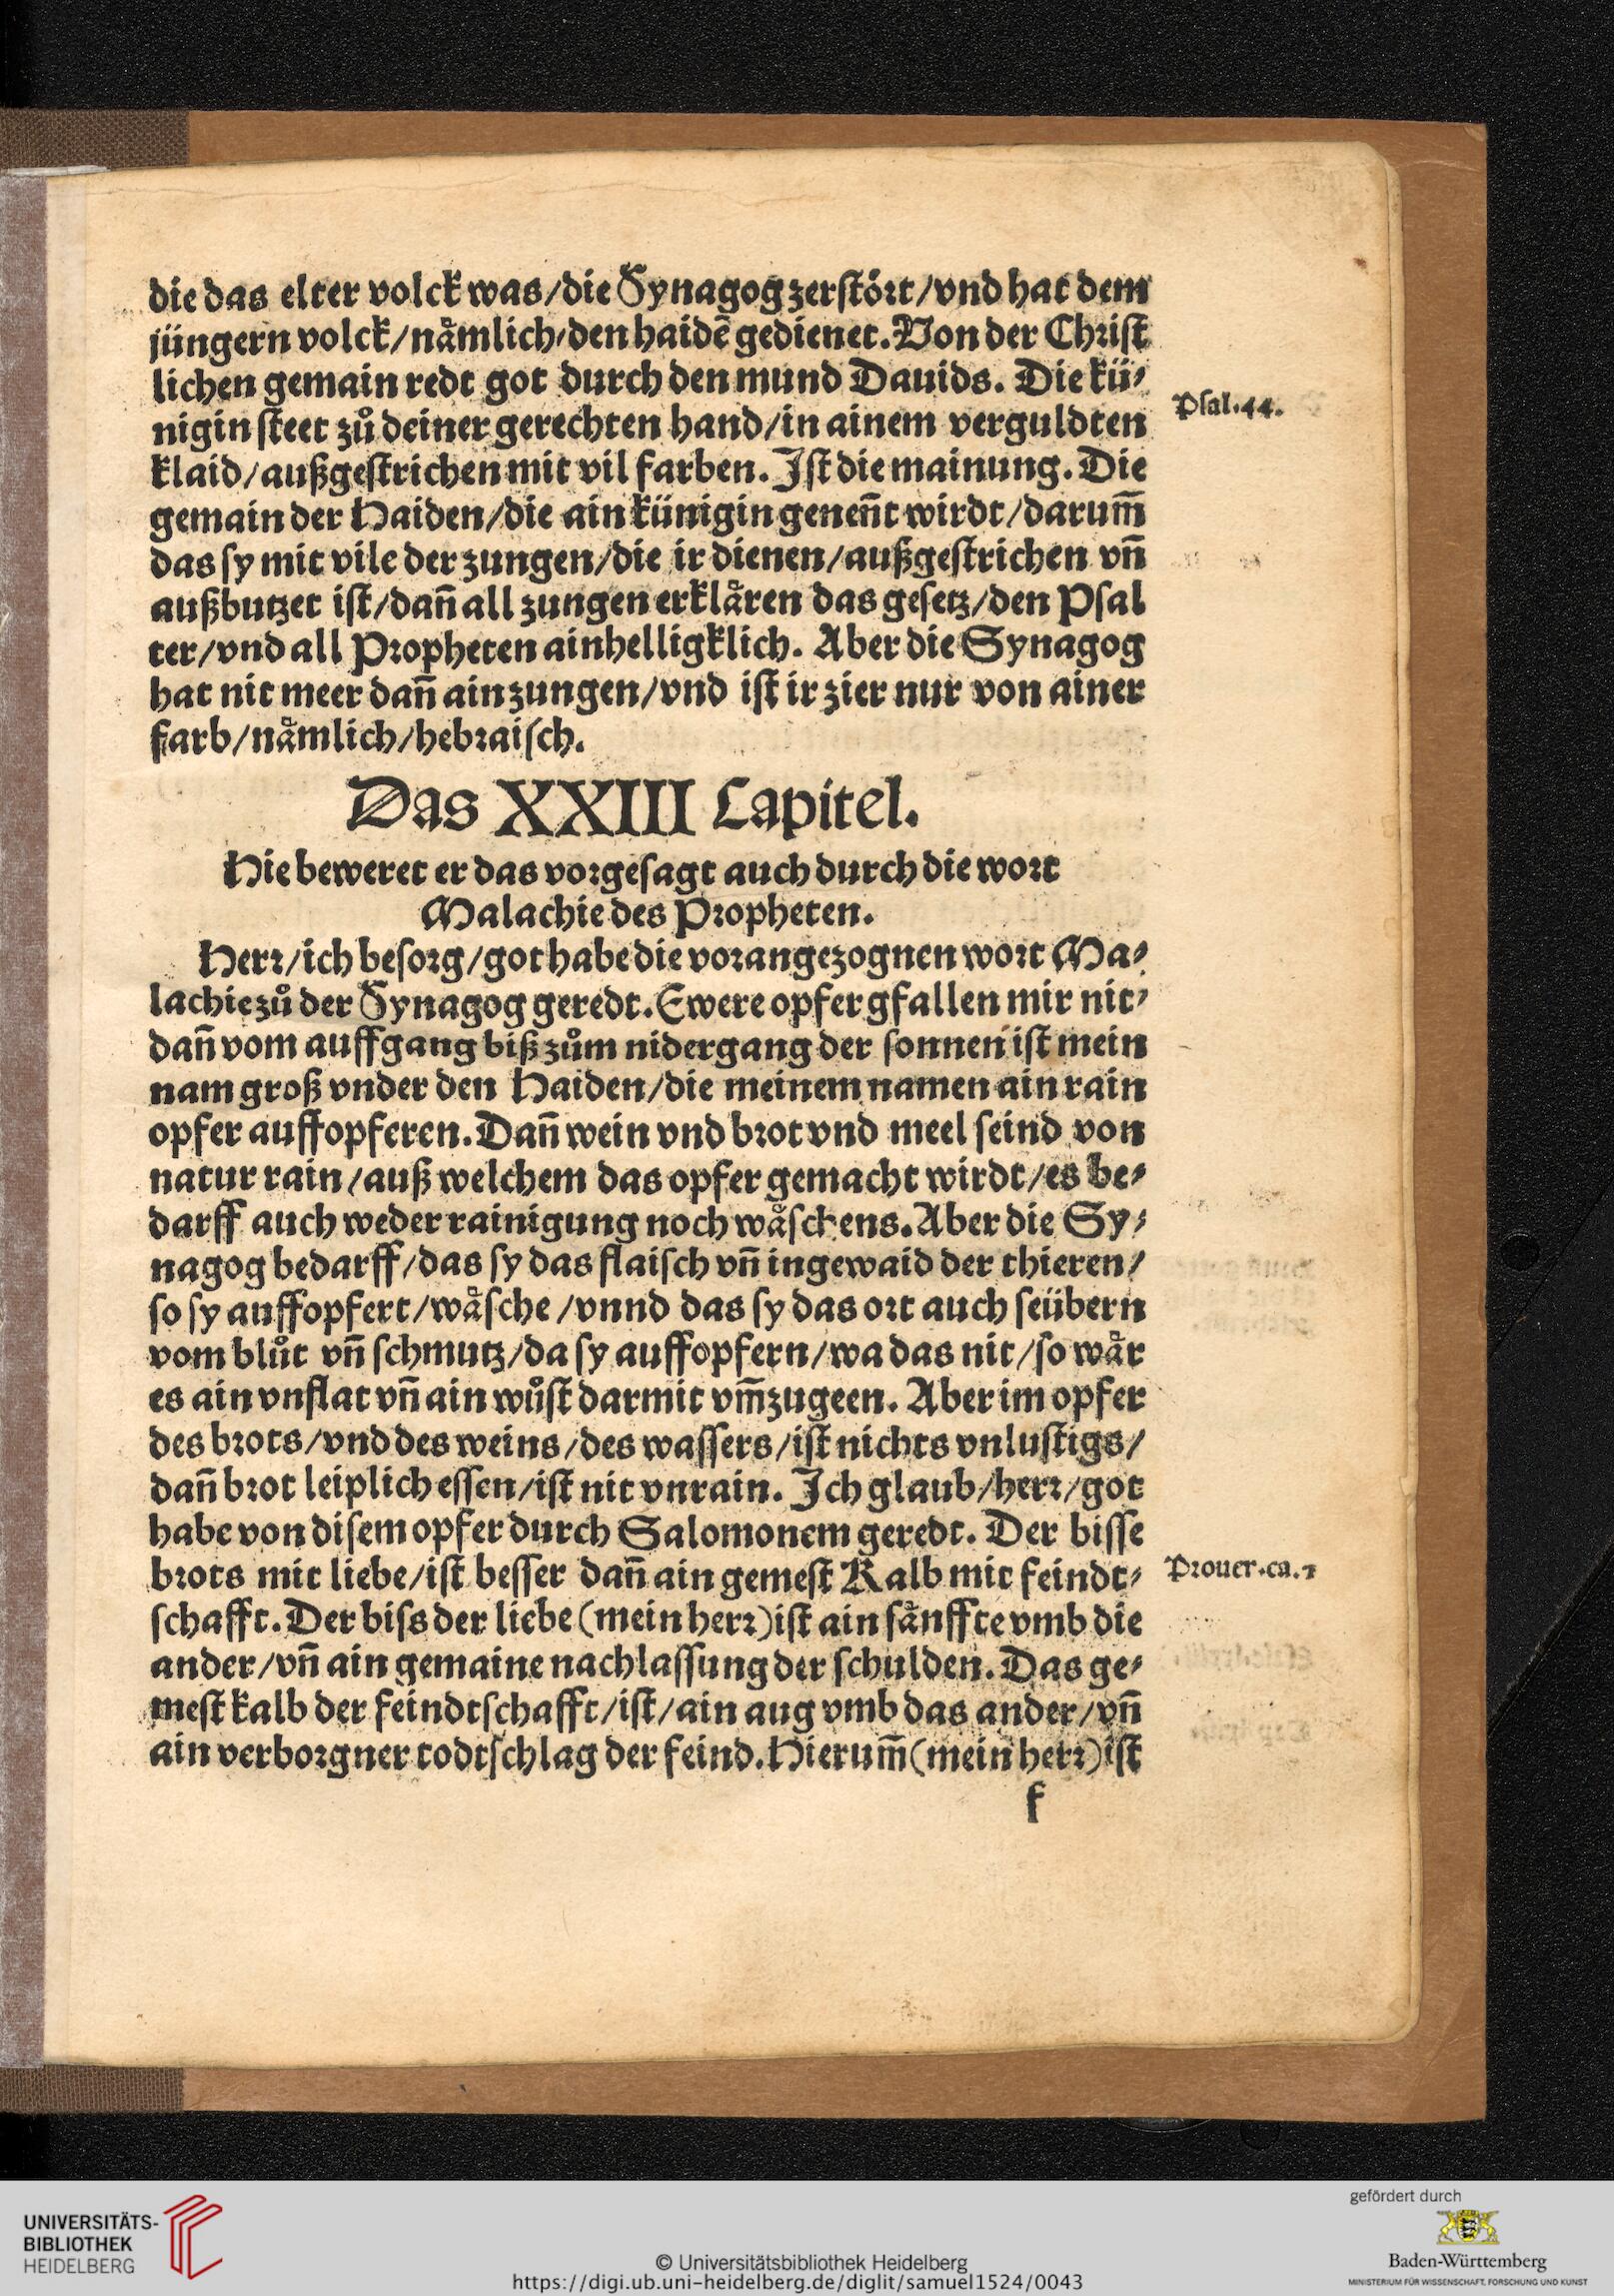 die das elter volck was/die Synagog zerstört/vnd hat dem
jüngern volck/nåmlich/den haidē gedienet. Von der Christ
lichen gemain redt got durch den mund Dauids. Die kü⸗
nigin steet zů deiner gerechten hand/in ainem verguldten
Psal.44.
klaid/außgestrichen mit vil farben. Ist die mainung. Die
gemain der Haiden/die ain künigin genen̄t wirdt/darum̄
das sy mit vile der zungen/die ir dienen/außgestrichen vn̄
außbutzet ist/dan̄ all zungen erklåren das gesetz/den Psal
ter/vnd all Propheten ainhelligklich. Aber die Synagog
hat nit meer dan̄ ain zungen/vnd ist ir zier nur von ainer
farb/nåmlich/hebraisch.
Das XXIII Capitel.
Hie beweret er das vorgesagt auch durch die wort
Malachie des Propheten.
Herr/ich besorg/got habe die vorangezognen wort Ma⸗
lachie zů der Synagog geredt. Ewere opfer gfallen mir nit⸗
dan̄ vom auffgang biß zům nidergang der sonnen ist mein
nam groß vnder den Haiden/die meinem namen ain rain
opfer auffopferen. Dan̄ wein vnd brot vnd meel seind von
natur rain/auß welchem das opfer gemacht wirdt/es be⸗
darff auch weder rainigung noch wåschens. Aber die Sy⸗
nagog bedarff/das sy das flaisch vn̄ ingewaid der thieren/
so sy auffopfert/wåsche/vnnd das sy das ort auch seübern
vom blůt vn̄ schmutz/da sy auffopfern/wa das nit/so wår
es ain vnflat vn̄ ain wůst darmit vm̄zugeen. Aber im opfer
des brots/vnd des weins/des wassers/ist nichts vnlustigs/
dan̄ brot leiplich essen/ist nit vnrain. Ich glaub/herr/got
habe von disem opfer durch Salomonem geredt. Der bisse
brots mit liebe/ist besser dan̄ ain gemest Kalb mit feindt⸗
Prouer.ca.
schafft. Der biss der liebe (mein herr) ist ain sånffte vmb die
ander/vn̄ ain gemaine nachlassung der schulden. Das ge⸗
mest kalb der feindtschafft/ist/ain aug vmb das ander/vn̄
ain verborgner todtschlag der feind. Hierum̄ (mein herr) ist
f
UNIVERSITÄTS-
BIBLIOTHEK
HEIDELBERG
© Universitätsbibliothek Heidelberg
https://digi.ub.uni-heidelberg.de/diglit/samuel1524/0043
gefördert durch
Baden-Württemberg
MINISTERIUM FÜR WISSENSCHAFT, FORSCHUNG UND KUNST